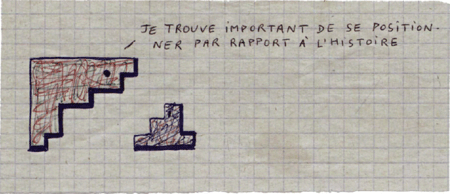 JE TROUVE IMPORTANT DE SE POSITION-
NER PAR RAPPORT À L'HISTOIRE